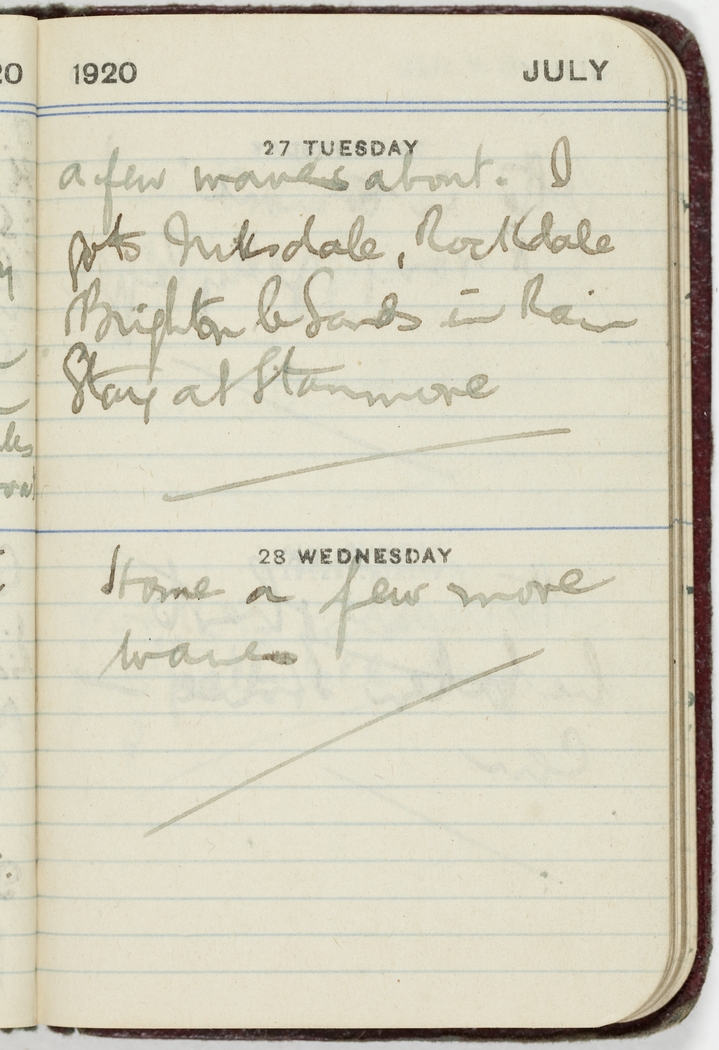 20 1920 JULY
27 TUESDAY
a few waves about. I
Rockdale
Brighton le Sands in Rain
Stay at Stanmore
28 WEDNESDAY
Home a few more
waves